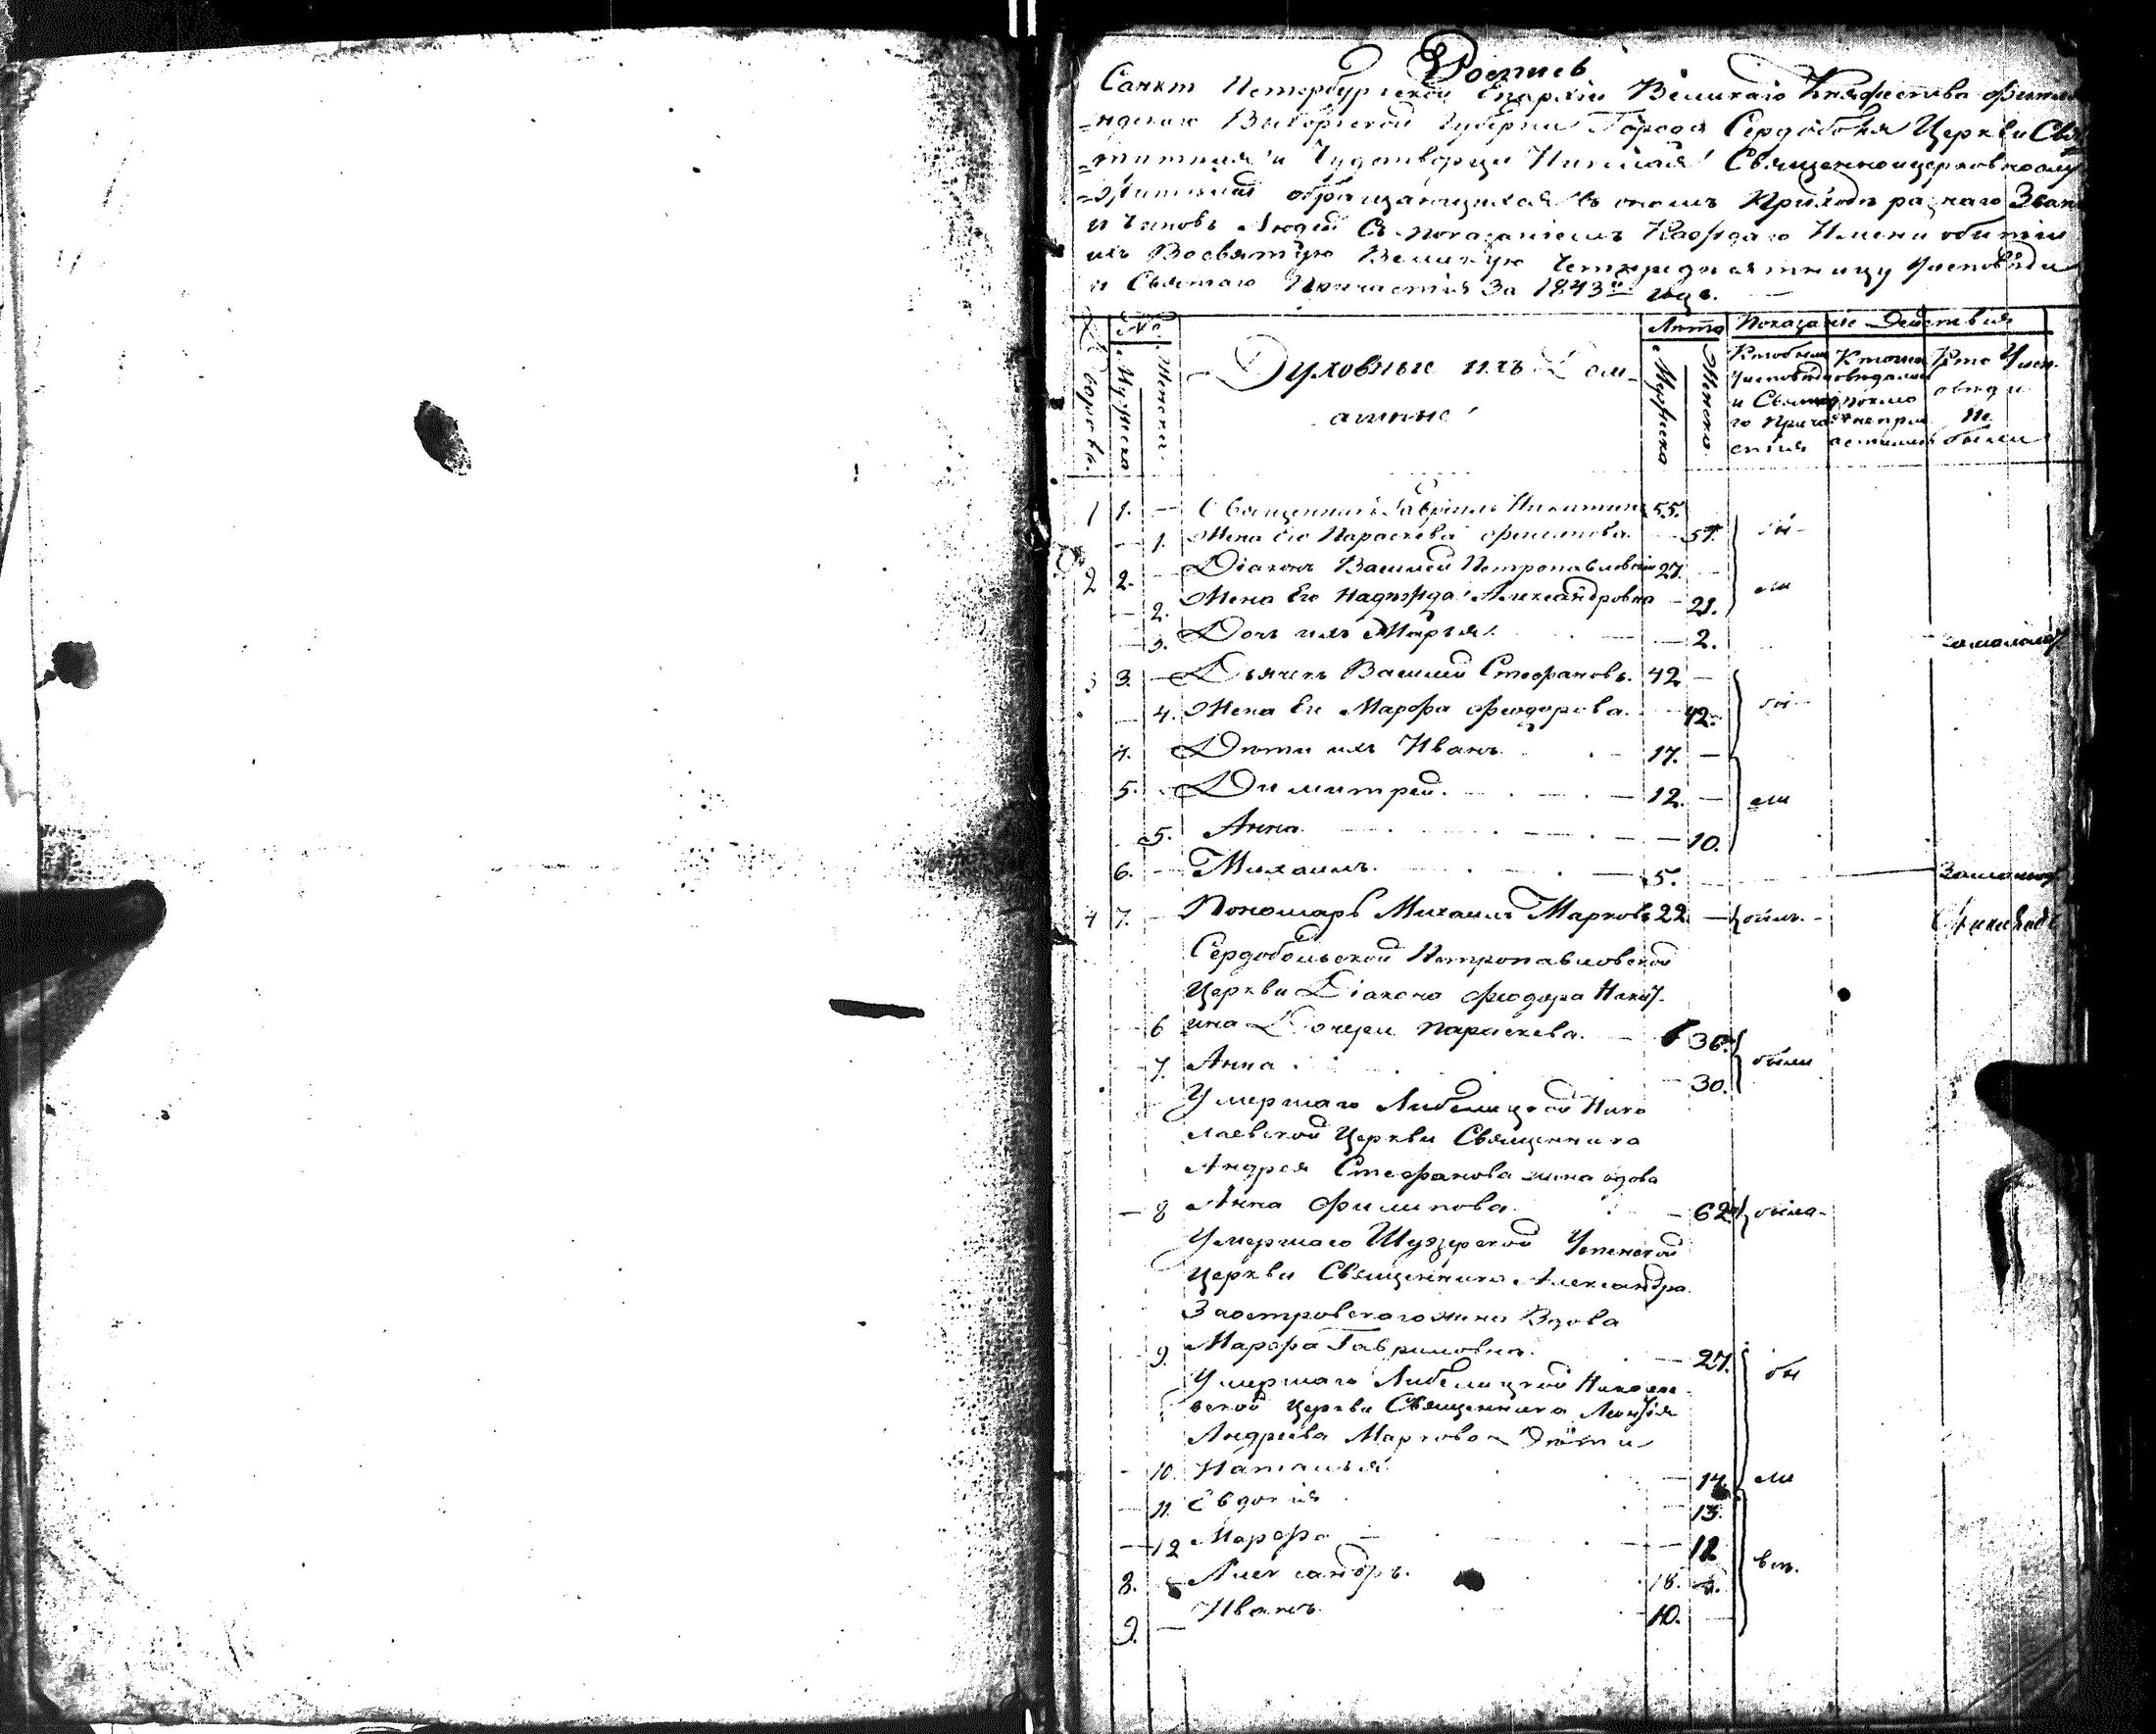 Роспись
Санкт Петербургской Епархiи Великаго Княжества Финля
=ндскаго Выборгской Губернiи Города Сердоболя Церкви Свя
=тителя и Чудотворца Николая Священноцерковнослу
=жителей обращающихся въ ономъ Приходъ разнаго Зван
и Чиновъ Людей Съ показанiемъ Каждаго Имени о бытiи
ихъ Восвятую Великую Четыредесятницу Уисповѣди
и Святаго Причастiя За 1843й годъ.
Дворовъ. № Мужеска Женска Духовные ихъ Дом- Лѣта Показанiе Действия
ашние Мужеска Женска Ктобылъ Уисповѣди и Святаго Причастiя Кто Уисповѣди не были
1 1. — Священникъ Гаврiилъ Никитинъ 55.
— 1. Жена его Параскева Филипова. — 57. бы-
2 2. — Дiаконъ Василей Петропавловскiй 27. —
— 2. Жена Его Надежда Александровна — 21. ли
3. Дочь ихъ Марья. — 2. замалолет
3 3. — Дьячекъ Василей Стефановъ. 42 —
— 4. Жена Ег Марфа Феодорова. — 42. бы-
4. Дѣти ихъ Иванъ. 17. —
5. Димитрей. 12. — ли
5. Анна. — 10.
6. — Михаилъ. 5. Замалолет
4 7. — Пономарь Михаилъ Марковъ 22 — былъ.
Сердобольской Петропавловской
Церкви Дiакона Феодора Никит-
6 ина Дочери Параскева. 36.
7. Анна. 30. были
Умершаго Либелицкой Нико
лаевской Церкви Священника
Андрея Стефанова жена вдова
— 8 Анна Филипова. — 62 была-
Умершаго Шуезерской Успенской
Церкви Священника Александра
Заостровскаго жена Вдова
9. Марфа Гавриловна. — 27. бы
Умершаго Либелицкой Николае
вской Церкви Священника
Андреева Маркова Дѣти
- 10. Наталья — 14. ли
— 11. Евдокiя 13.
— 12 Марфа — 12
8. — Александръ. 18. всѣ.
9. — Иванъ. 10. —